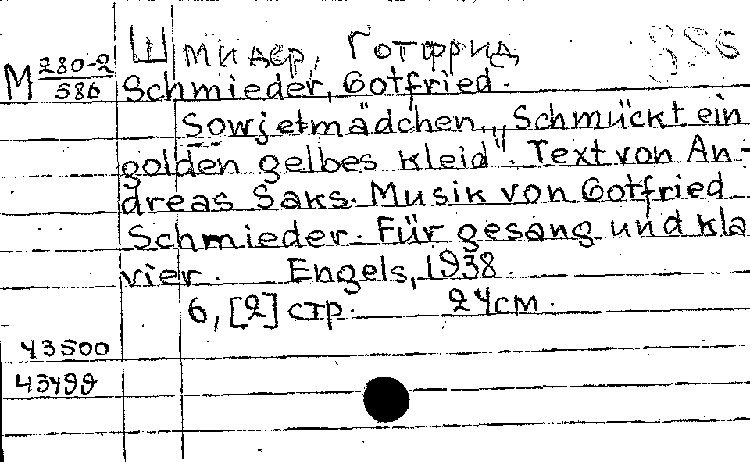 Шмидер, Готфрид
М 280-2/586
Schmieder, Gotfried.
Sowjetmädchen. „Schmückt ein
golden gelbes Kleid". Text von An-
dreas Saks. Musik von Gotfried
Schmieder. Für gesang und Kla
vier. Engels, 1938.
6, [2] стр. 24 см.
43500
43499